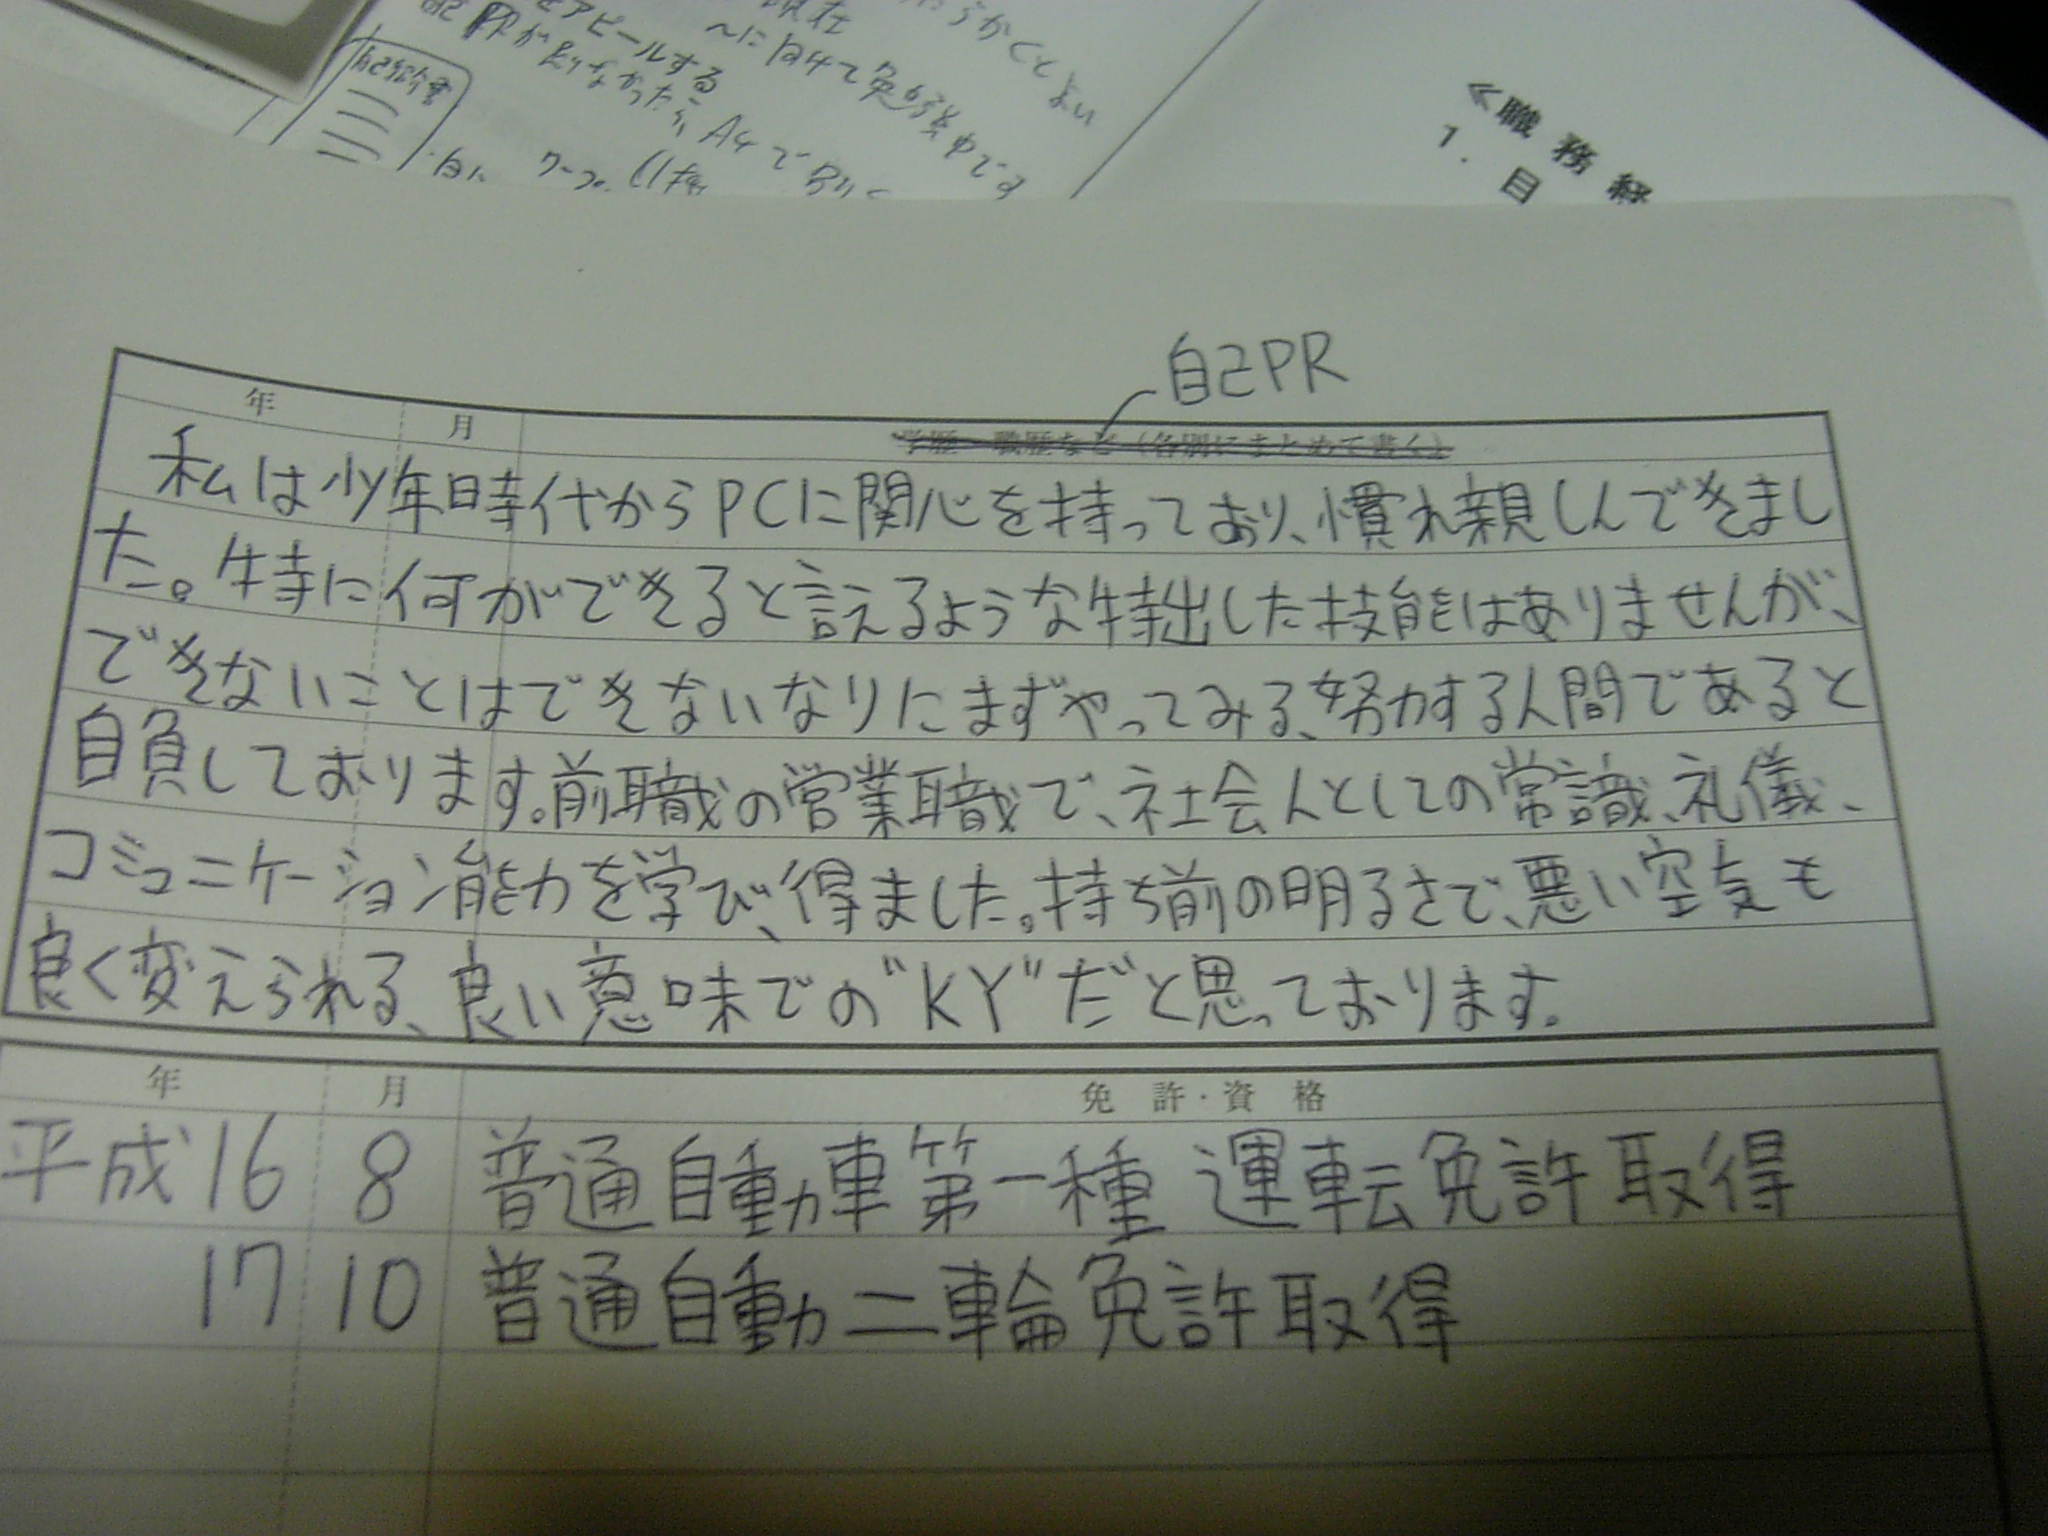 をアピールする
～に向けて勉強中です
かくとよい
A4で別に
≪職務経
1. 目
自己PR
年 月 学歴・職歴など(各別にまとめて書く)
私は少年時代からPCに関心を持っており、慣れ親しんできまし
た。特に何ができると言えるような特出した技能はありませんが、
できないことはできないなりにまずやってみる、努力する人間であると
自負しております。前職の営業職で、社会人としての常識、礼儀、
コミュニケーション能力を学び、得ました。持ち前の明るさで、悪い空気も
良く変えられる、良い意味での"KY"だと思っております。
年 月 免許・資格
平成16 8 普通自動車第一種 運転免許取得
17 10 普通自動二輪免許取得